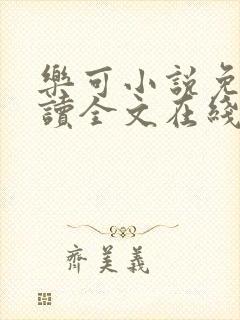 樂可小說免
讀全文在綫
齊美義